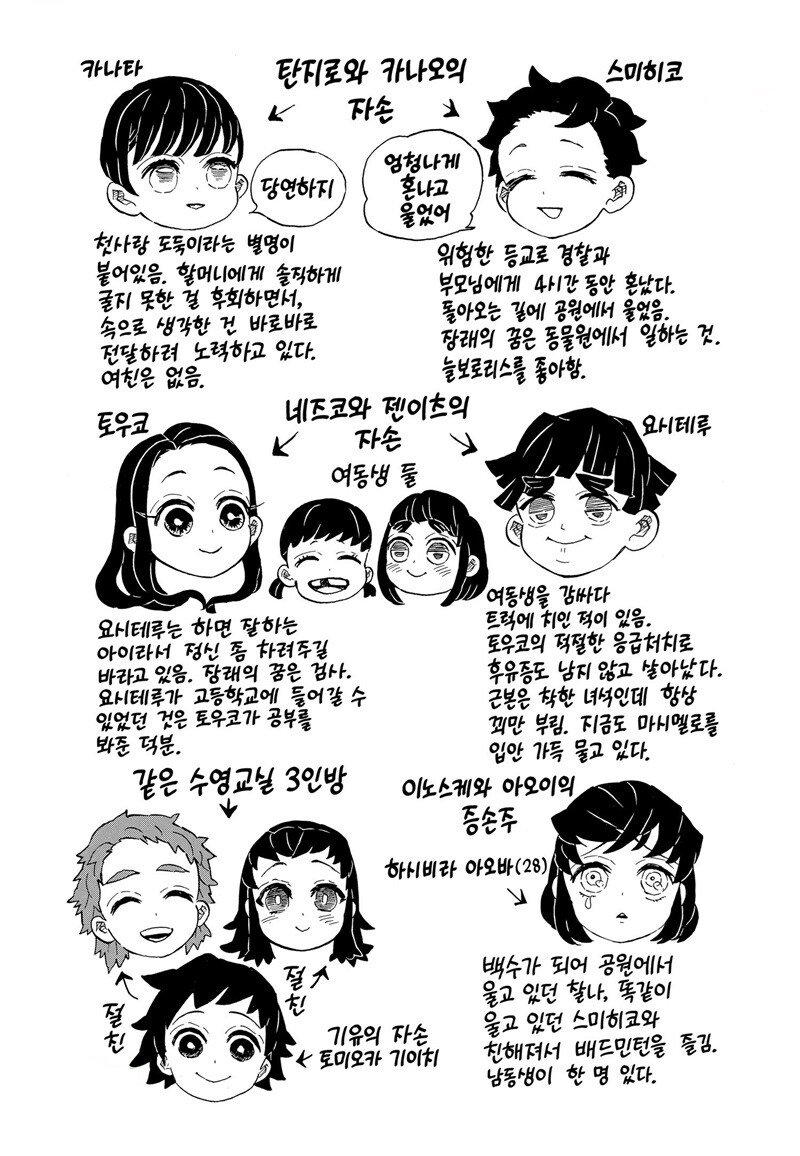 카나타
탄지로와 카나오의
자손
스미히코
당연하지
엄청나게
혼나고
울었어
첫사랑 도둑이라는 별명이
붙어있음. 할머니에게 솔직하게
굴지 못한 걸 후회하면서,
속으로 생각한 건 바로바로
전달하려 노력하고 있다.
여친은 없음.
위험한 등교로 경찰과
부모님에게 4시간 동안 혼났다.
돌아오는 길에 공원에서 울었음.
장래의 꿈은 동물원에서 일하는 것.
늘보로리스를 좋아함.
토우코
네즈코와 젠이츠의
자손
요시테루
여동생 둘
요시테루는 하면 잘하는
아이라서 정신 좀 차려주길
바라고 있음. 장래의 꿈은 검사.
요시테루가 고등학교에 들어갈 수
있었던 것은 토우코가 공부를
봐준 덕분.
여동생을 감싸다
트럭에 치인 적이 있음.
토우코의 적절한 응급처치로
후유증도 남지 않고 살아났다.
근본은 착한 녀석인데 항상
꾀만 부림. 지금도 마시멜로를
입안 가득 물고 있다.
같은 수영교실 3인방
절친
절친
기유의 자손
토미오카 기이치
이노스케와 아오이의
증손주
하시비라 아오바(28)
백수가 되어 공원에서
울고 있던 찰나, 똑같이
울고 있던 스미히코와
친해져서 배드민턴을 즐김.
남동생이 한 명 있다.